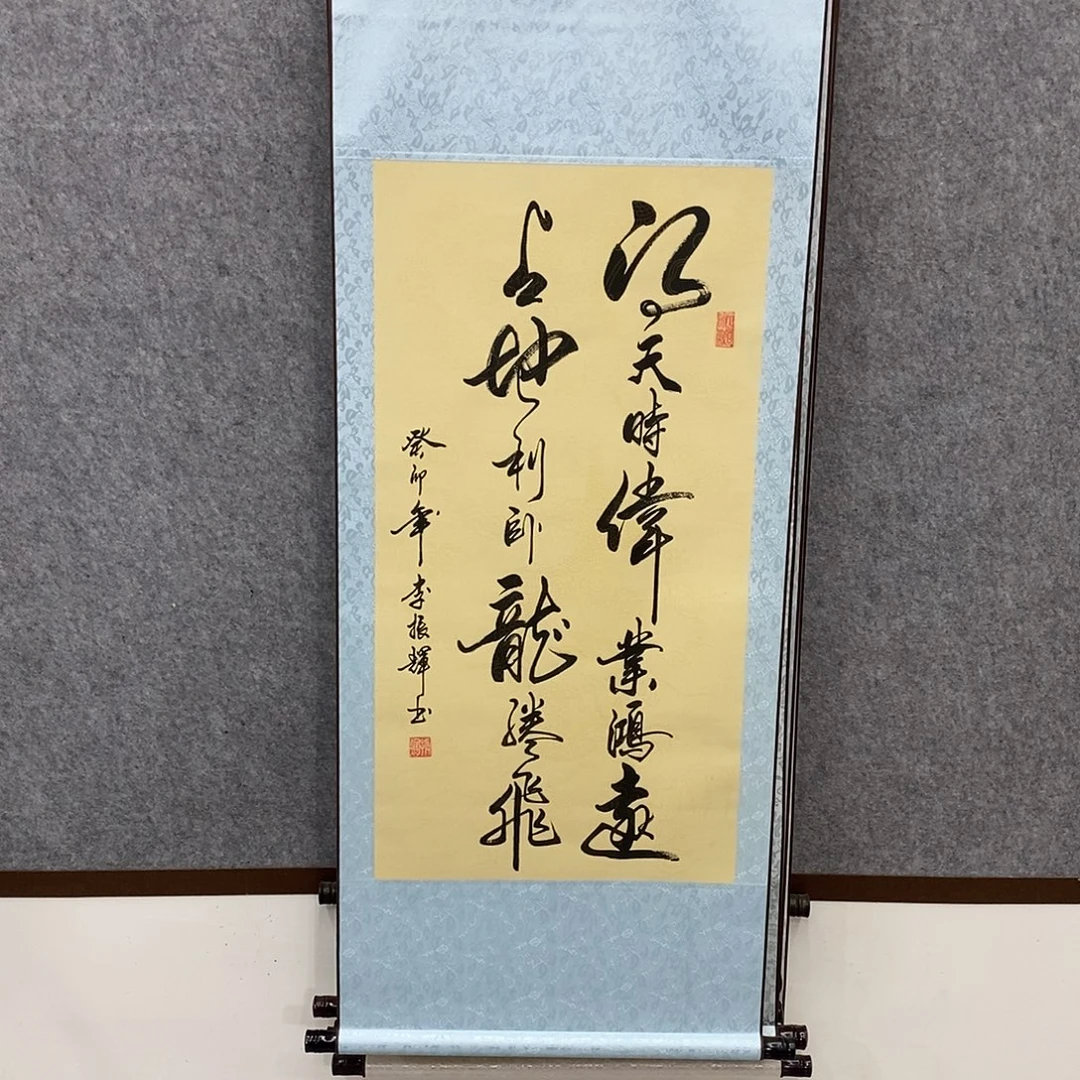 得天時偉業鴻遠
占地利卧龍騰飛
癸卯年李振輝书